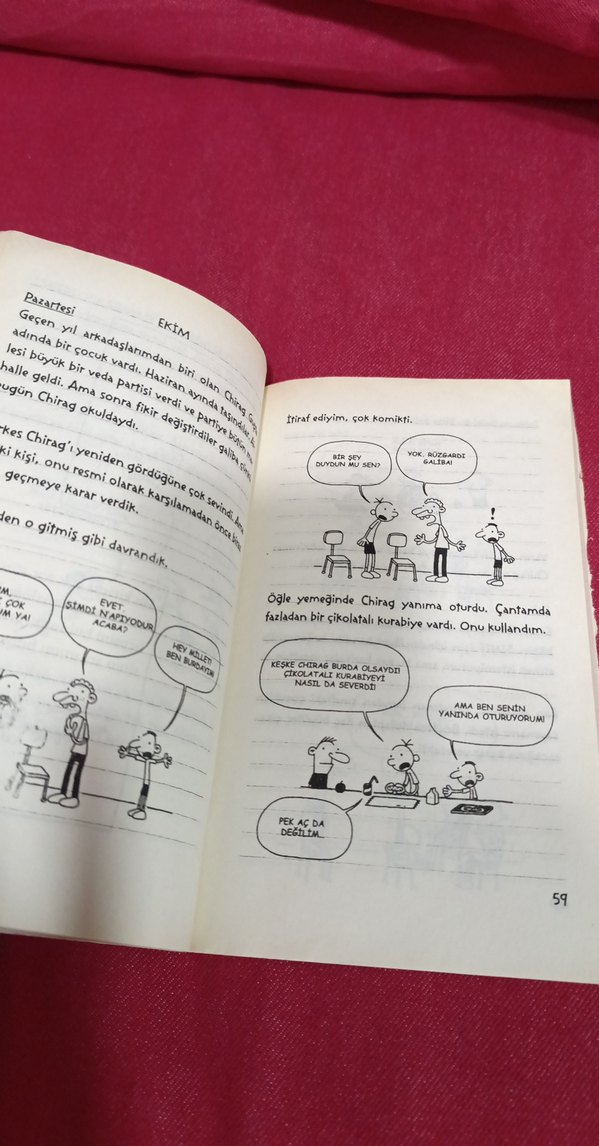 EKİM
Pazartesi
Geçen yıl arkadaşlarımdan biri olan Chirag
adında bir çocuk vardı. Haziran ayında taşındılar.
lesi büyük bir veda partisi verdi ve partiye bütün
halle geldi. Ama sonra fikir değiştirdiler galiba
ugün Chirag okuldaydı.
rkes Chirag'ı yeniden gördüğüne çok sevindi.
ki kişi, onu resmi olarak karşılamadan önce
geçmeye karar verdik.
den o gitmiş gibi davrandık.
ÇOK
UM YA!
EVET.
ŞİMDİ N'APIYODUR
ACABA?
HEY MİLLET!
BEN BURDAYIM!
İtiraf ediyim, çok komikti.
BİR ŞEY
DUYDUN MU SEN?
YOK, RÜZGARDI
GALİBA!
!
Öğle yemeğinde Chirag yanıma oturdu. Çantamda
fazladan bir çikolatalı kurabiye vardı. Onu kullandım.
KEŞKE CHIRAG BURDA OLSAYDI!
ÇİKOLATALI KURABİYEYİ
NASIL DA SEVERDİ!
AMA BEN SENİN
YANINDA OTURUYORUM!
PEK AÇ DA
DEĞİLİM...
59